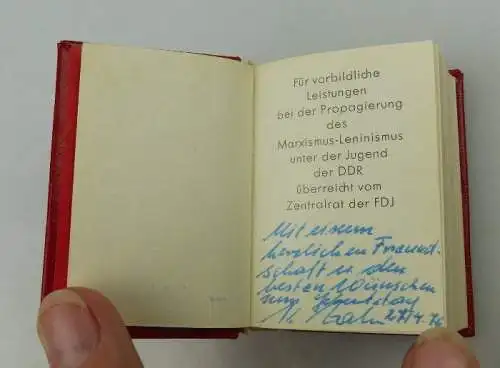 Für vorbildliche
Leistungen
bei der Propagierung
des
Marxismus-Leninismus
unter der Jugend
der DDR
überreicht vom
Zentralrat der FDJ
Mit einem
herzlichen Freund-
schaft u. den
besten Wünschen
zum Geburtstag